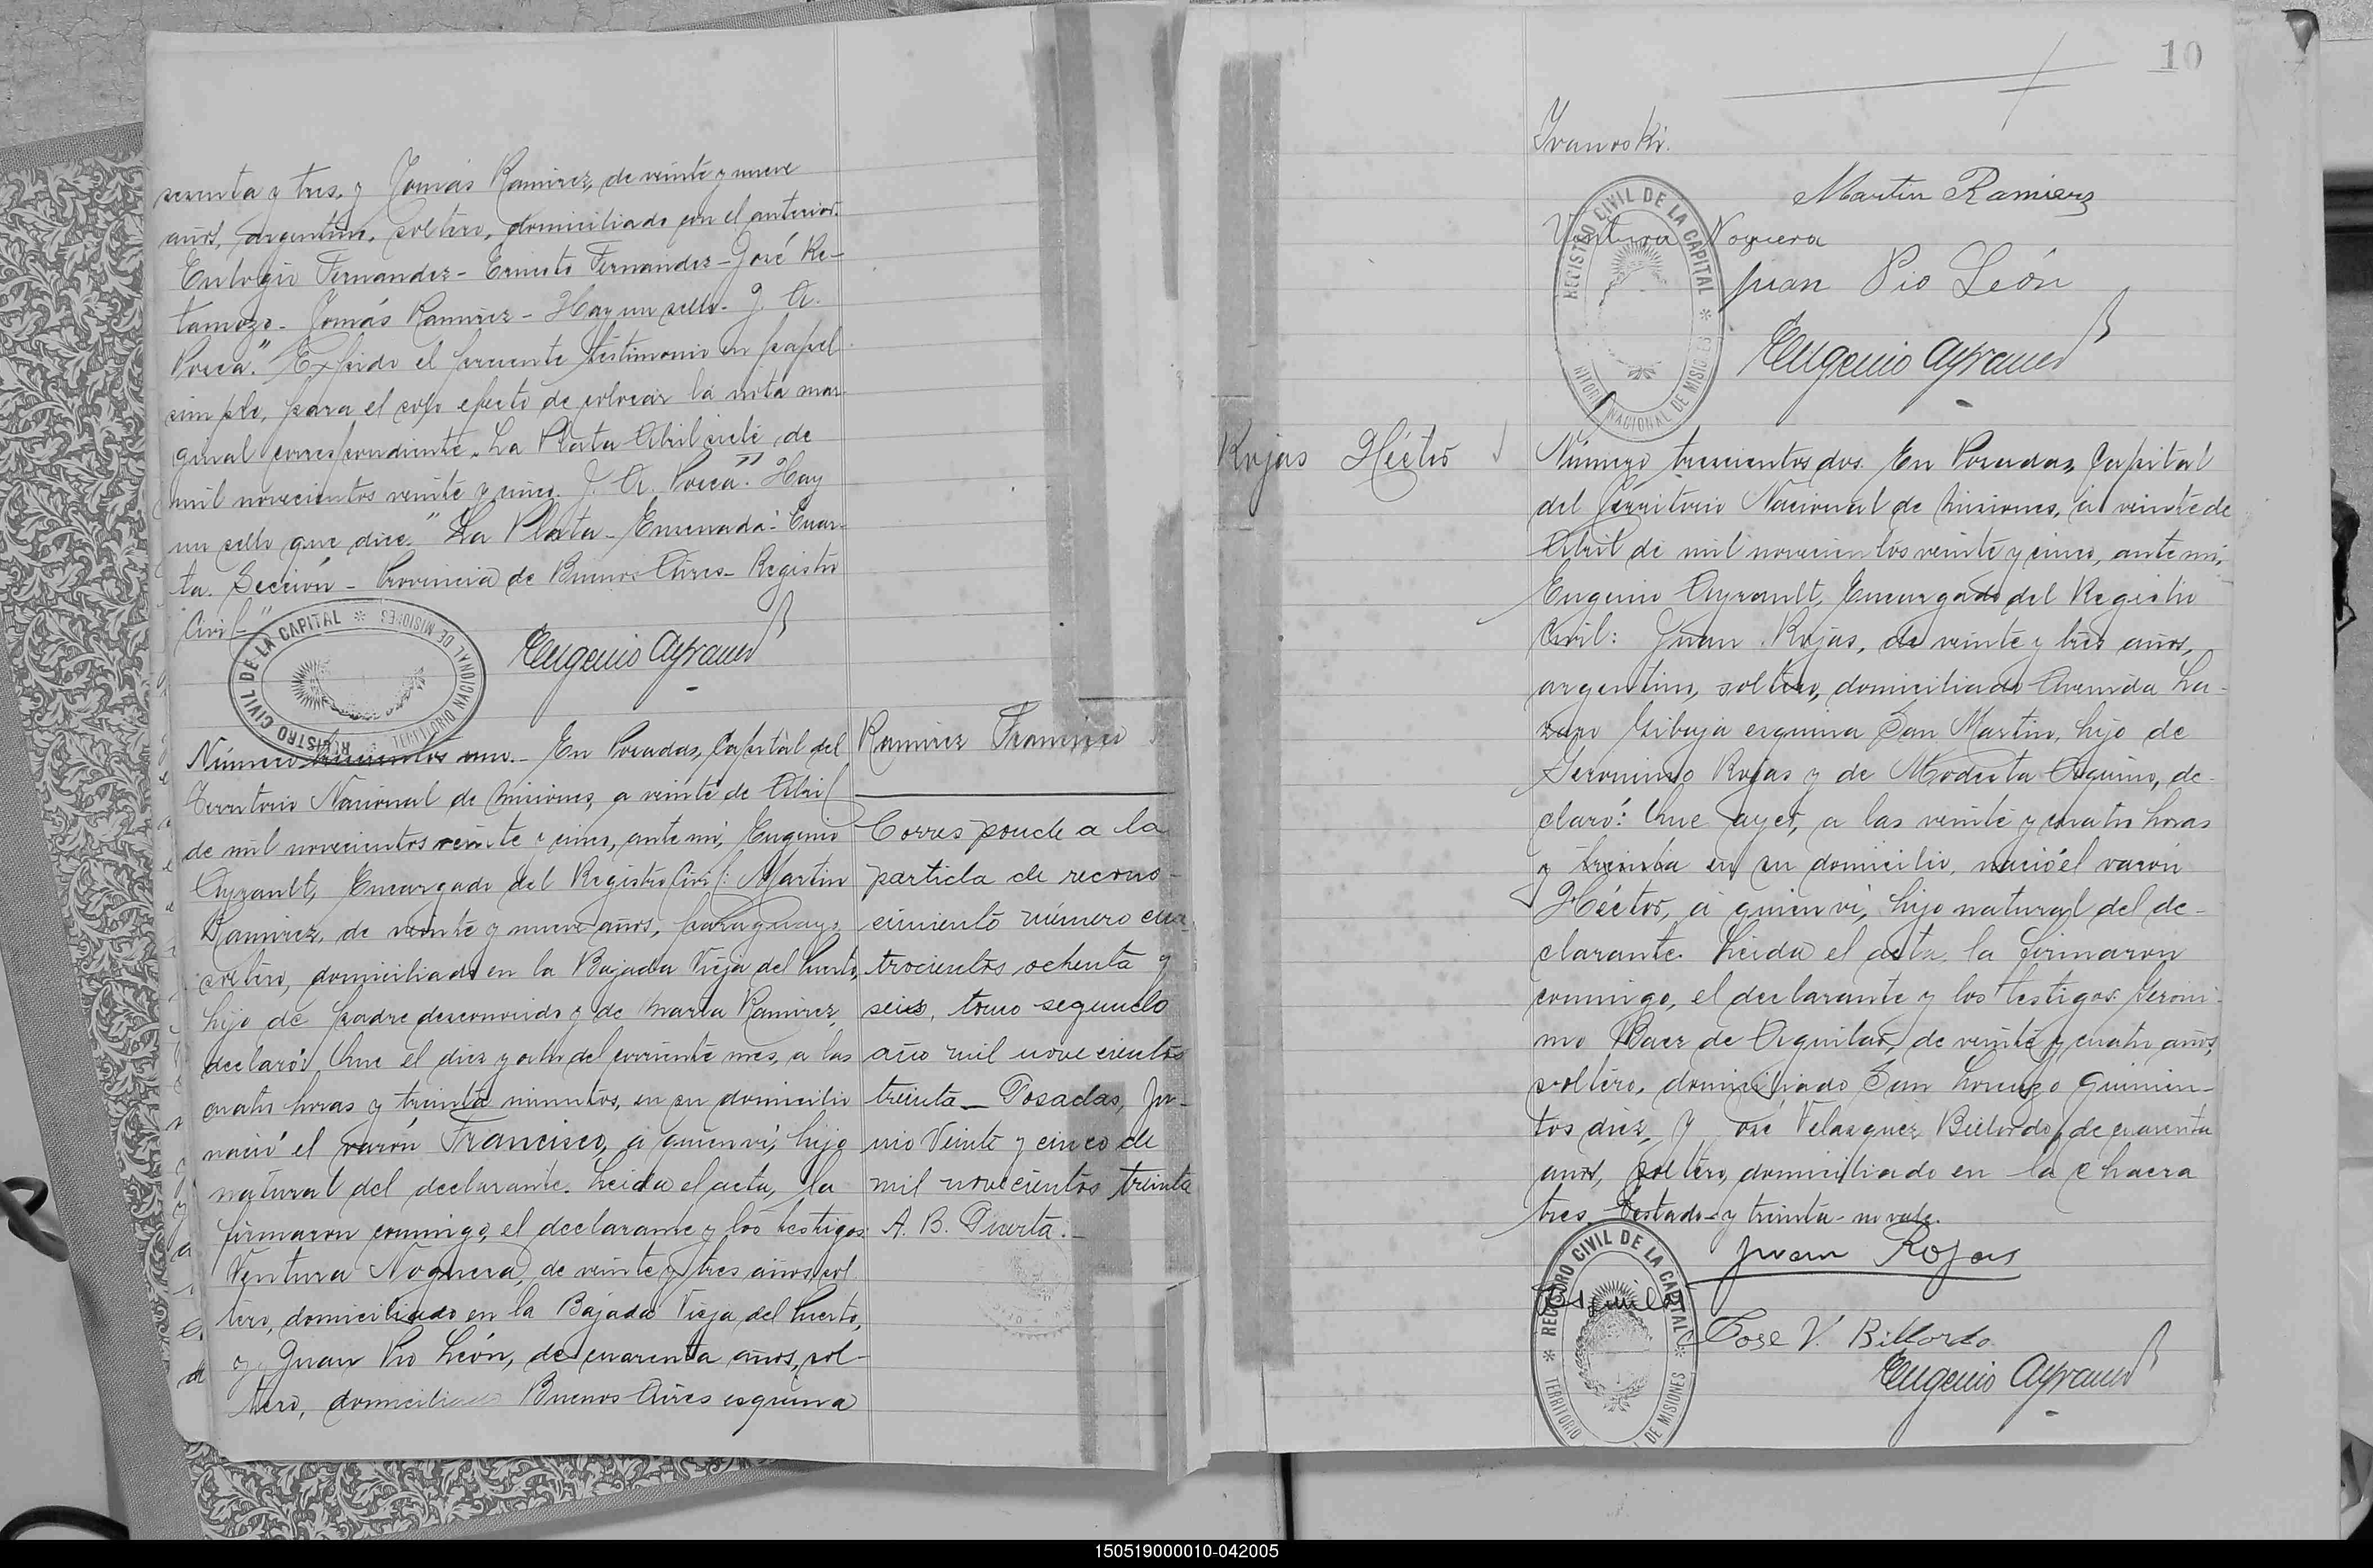 sesenta y tres, y Tomás Ramirez, de veinte y nueve
años, argentino, soltero, domiciliado con el anterior.
Eulogio Fernandez - Ernesto Fernandez - José Re-
tamozo - Tomás Ramirez - Hay un sello - J. A.
Porca." Expido el presente testimonio en papel
simple, para el solo efecto de colocar la nota mar-
ginal correspondiente. La Plata Abril siete de
mil novecientos veinte y cinco. J. A. Porca". Hay
un sello que dice: "La Plata - Ensenada - Cuar-
ta. Sección - Provincia de Buenos Aires - Registro
Civil"
REGISTRO CIVIL DE LA CAPITAL * TERRITORIO NACIONAL DE MISIONES
Eugenio Ayrault
Ramirez Francisco
Número trescientos uno. - En Posadas, Capital del
Territorio Nacional de Misiones, a veinte de Abril
de mil novecientos veinte y cinco, ante mi, Eugenio
Ayrault, Encargado del Registro Civil: Martin
Ramirez, de veinte y nueve años, paraguayo,
soltero, domiciliado en la Bajada Vieja del Puerto,
hijo de padre desconocido y de Maria Ramirez,
declaró: Que el diez y ocho del corriente mes, a las
cuatro horas y treinta minutos, en su domicilio
nació el varón Francisco, a quien vi, hijo
natural del declarante. Leida el acta, la
firmaron conmigo, el declarante y los testigos
Ventura Noguera, de veinte y tres años, sol-
tero, domiciliado en la Bajada Vieja del Puerto,
y Juan Pio León, de cuarenta años, sol-
tero, domiciliado Buenos Aires esquina
Corresponde a la
partida de recono-
cimiento número cua-
trocientos ochenta y
seis, tomo segundo
año mil novecientos
treinta - Posadas, Ju-
nio Veinte y cinco de
mil novecientos treinta
A. B. Puerta. -
10
Ivanoski.
Martin Ramirez
Ventura Noguera
Juan Pio León
REGISTRO CIVIL DE LA CAPITAL * TERRITORIO NACIONAL DE MISIONES
Eugenio Ayrault
Rojas Héctor
Número trescientos dos. En Posadas, Capital
del Territorio Nacional de Misiones, a veinte de
Abril de mil novecientos veinte y cinco, ante mi,
Eugenio Ayrault, Encargado del Registro
Civil: Juan Rojas, de veinte y tres años,
argentino, soltero, domiciliado Avenida La-
zaro Gibaja esquina San Martin, hijo de
Geronimo Rojas y de Modesta Aquino, de-
claró: Que ayer, a las veinte y cuatro horas
y treinta en su domicilio, nació el varón
Héctor, a quien vi, hijo natural del de-
clarante. Leida el acta, la firmaron
conmigo, el declarante y los testigos Geroni-
mo Baez de Aguilar, de veinte y cuatro años,
soltero, domiciliado San Lorenzo quinien-
tos diez, y José Velazquez Billordo, de cuarenta
años, soltero, domiciliado en la chacra
tres. Testado - y treinta - no vale.
Juan Rojas
José V. Billordo
REGISTRO CIVIL DE LA CAPITAL * TERRITORIO DE MISIONES
Eugenio Ayrault
150519000010-042005